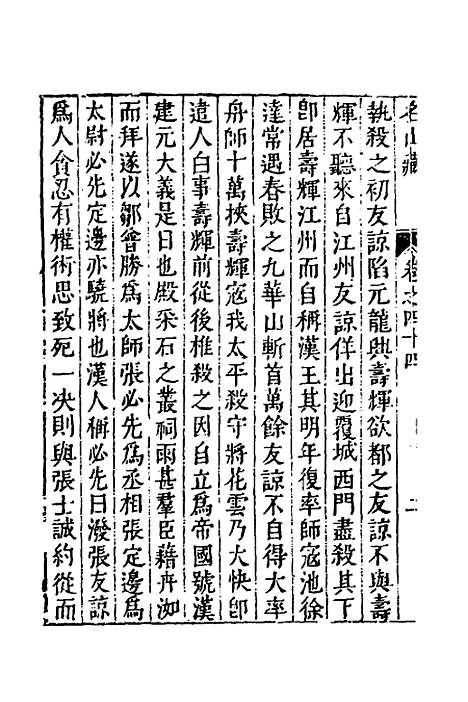 名山藏 卷之四十四 二
執殺之初友諒陷元龍興壽輝欲都之友諒不與壽
輝不聽來自江州友諒佯出迎覆城西門盡殺其下
卽居壽輝江州而自稱漢王其明年復率師寇池徐
達常遇春敗之九華山斬首萬餘友諒不自得大率
舟師十萬挾壽輝寇我太平殺守將花雲乃大快卽
遣人白事壽輝前從後椎殺之因自立爲帝國號漢
建元大義是日也殿采石之叢祠雨甚羣臣藉卉沙
而拜遂以鄒會勝爲太師張必先爲丞相張定邊爲
太尉必先定邊亦驍將也漢人稱必先曰潑張友諒
爲人貪忍有權術思致死一决則與張士誠約從而